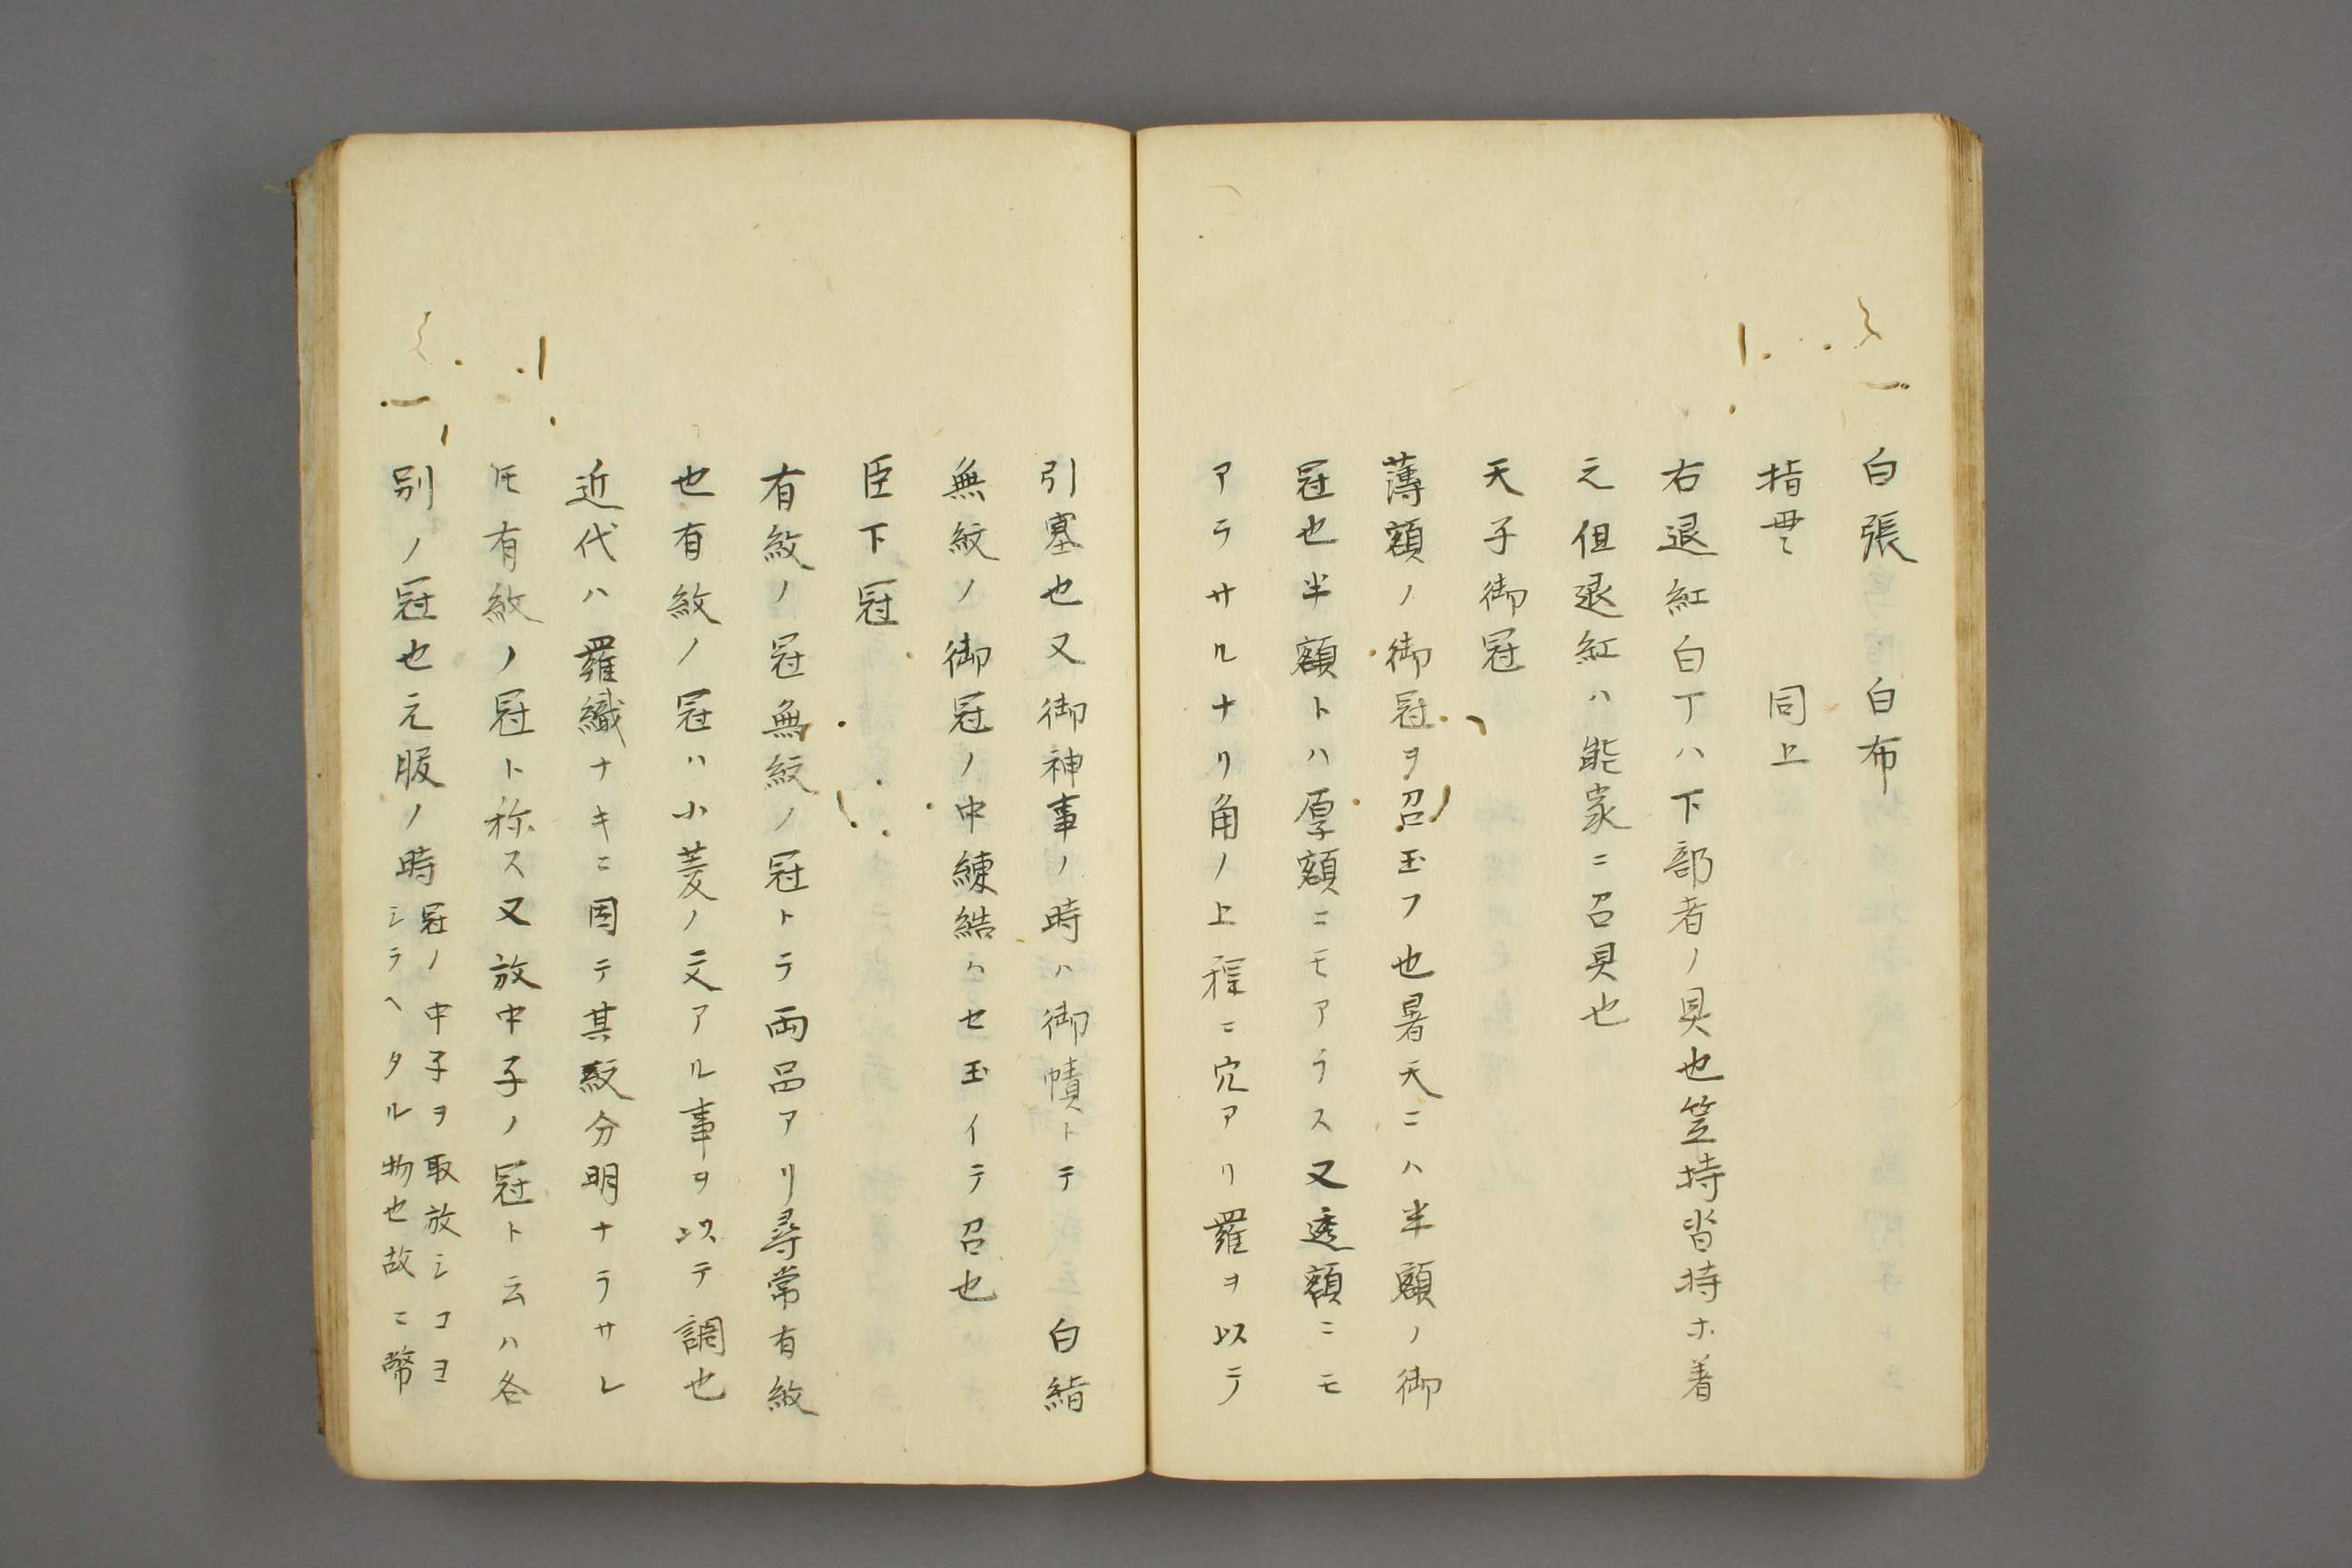 白張　　白布
指貫　　同上
右退紅白丁ハ下部者ノ具也笠持沓持ホ着
之但退紅ハ能家ニ召具也
天子御冠
薄額ノ御冠ヲ召玉フ也暑天ニハ半額ノ御
冠也半額トハ厚額ニモアラス又透額ニモ
アラサルナリ角ノ上程ニ穴アリ羅ヲ以テ
引塞也又御神事ノ時ハ御幘トテ　白絹
無紋ノ御冠ノ中練結ハセ玉イテ召也
臣下冠
有紋ノ冠無紋ノ冠トテ両品アリ尋常有紋
也有紋ノ冠ハ小菱ノ文アル事ヲ以テ調也
近代ハ羅織ナキニ因テ其紋分明ナラサレ
𪜈有紋ノ冠ト称ス又放中子ノ冠ト云ハ各
別ノ冠也元服ノ時
冠ノ中子ヲ取放シコヨ
シラヘタル物也故ニ幣